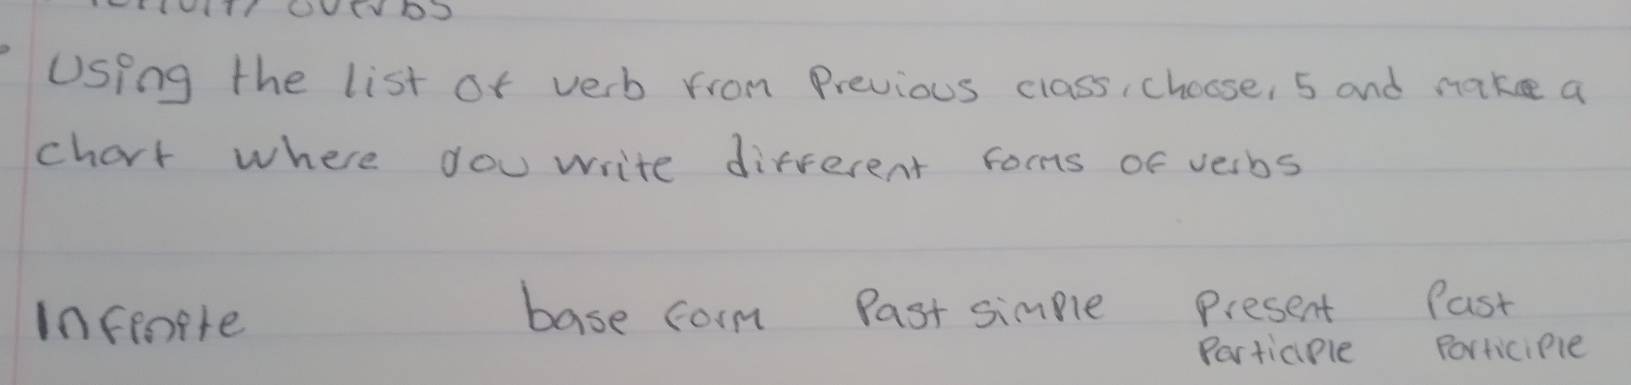 Using the list of verb from Previous class, choose, 5 and make a
chart where you write different forms of verbs
Infinite base form Past simple Present Past
Participle Participle